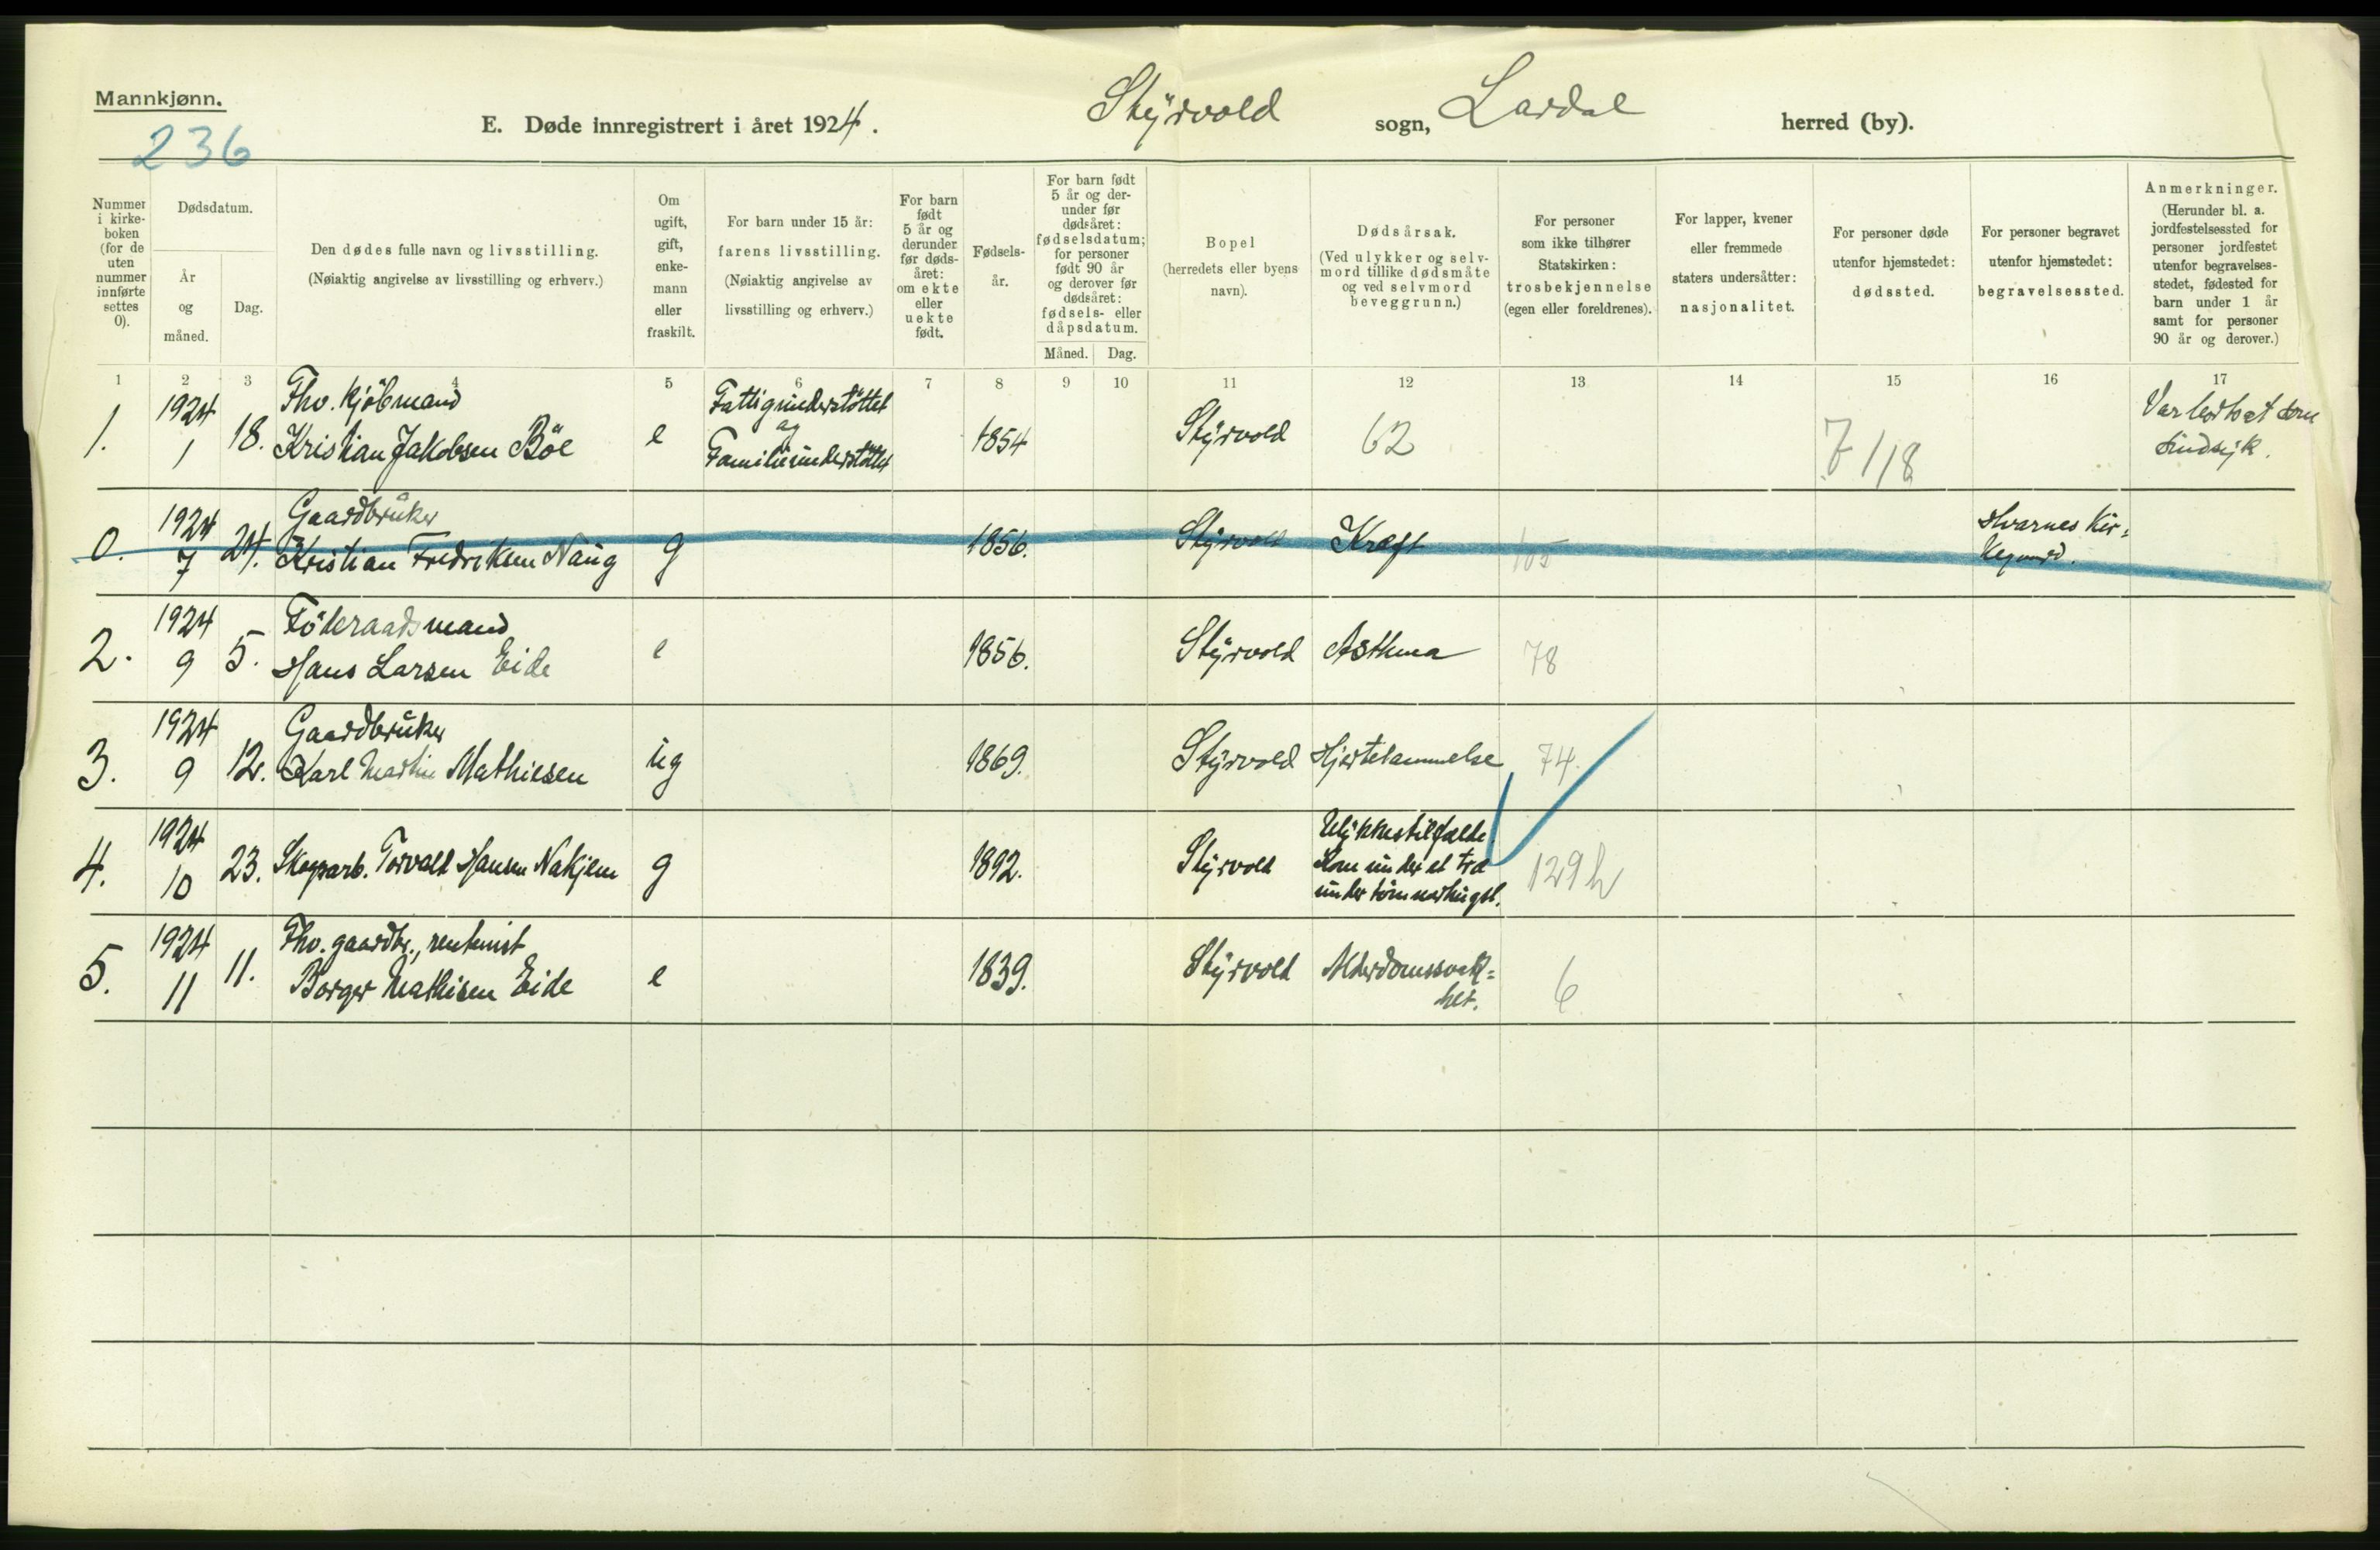 Mannkjønn.
236
E. Døde innregistrert i året 1924.
Styrvold sogn, Lardal herred (by).
Nummer i kirke-boken (for de uten nummer innførte settes 0).
Dødsdatum.
År og måned.
Dag.
Den dødes fulle navn og livsstilling.
(Nøiaktig angivelse av livsstilling og erhverv.)
Om ugift, gift, enke-mann eller fraskilt.
For barn under 15 år:
farens livsstilling.
(Nøiaktig angivelse av livsstilling og erhverv.)
For barn født 5 år og derunder før døds-året: om ekte eller uekte født.
Fødsels-år.
For barn født 5 år og der-under før dødsåret: fødselsdatum; for personer født 90 år og derover før dødsåret: fødsels- eller dåpsdatum.
Måned. Dag.
Bopel
(herredets eller byens navn).
Dødsårsak.
(Ved ulykker og selv-mord tillike dødsmåte og ved selvmord beveggrunn.)
For personer som ikke tilhører Statskirken: trosbekjennelse (egen eller foreldrenes).
For lapper, kvener eller fremmede staters undersåtter: nasjonalitet.
For personer døde utenfor hjemstedet: dødssted.
For personer begravet utenfor hjemstedet: begravelsessted.
Anmerkninger.
(Herunder bl. a. jordfestelsessted for personer jordfestet utenfor begravelses-stedet, fødested for barn under 1 år samt for personer 90 år og derover.)
1 2 3 4 5 6 7 8 9 10 11 12 13 14 15 16 17
1. 1924 1 18. Fhv. Kjöbmand
Kristian Jakobsen Böe e Fattigunderstöttet
og
Familieunderstöttet 1854 Styrvold 62 7/18 Var bortsat som
sindsyk.
0. 1924 7 24. Gaardbruker
Kristian Fredriksen Naug g 1856. Styrvold Kræft 105 Hvarnes Kir-
kegaard.
2. 1924 9 5. Föderaadsmand
Hans Larsen Eide e 1856. Styrvold Asthma 78
3. 1924 9 12. Gaardbruker
Karl Martin Mathiesen ug 1869. Styrvold Hjertelammelse 74.
4. 1924 10 23. Skogsarb. Torvald Hansen Nakjem g 1892. Styrvold Ulykkestilfælde
Kom under et træ
under tömmerhugst. 129 h
5. 1924 11 11. Fhv. gaardbr., rentenist
Borger Mathisen Eide e 1839. Styrvold Alderdomssvak-
het. 6